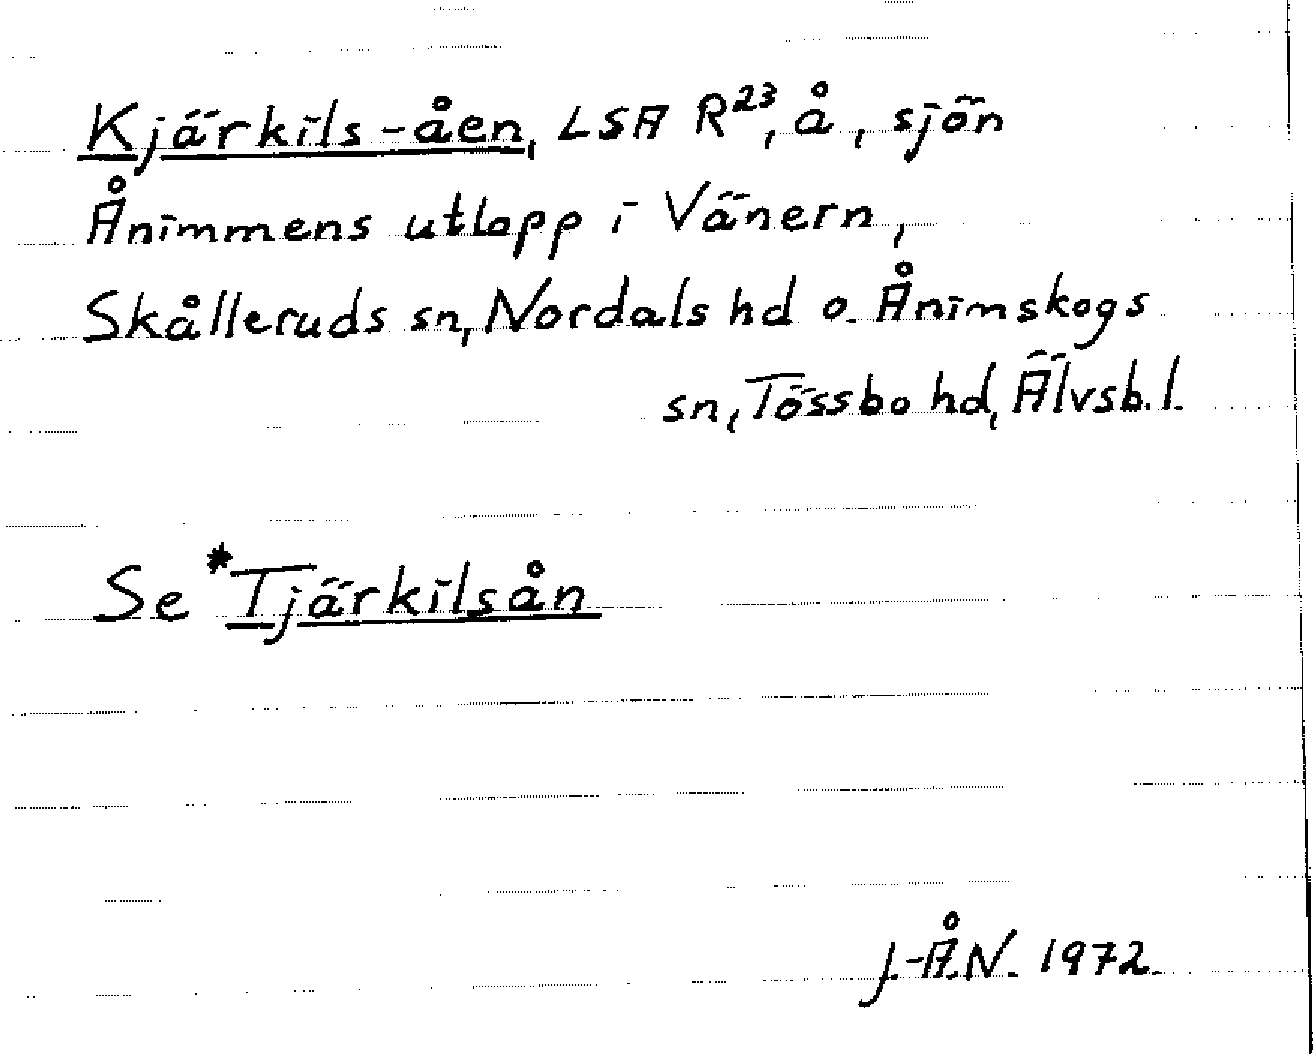 Kjärkils-åen, LSA R²³, å, sjön
Ånimmens utlopp i Vänern,
Skålleruds sn, Nordals hd o. Ånimskogs
sn, Tössbo hd, Älvsb. l.
Se *Tjärkilsån
J.-Å.N. 1972.